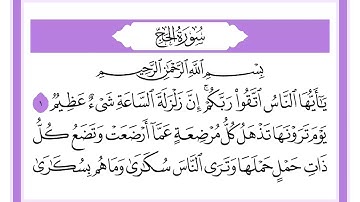 سُورَةُ الحَجِّ
بِسْمِ اللَّهِ الرَّحْمَٰنِ الرَّحِيمِ
يَٰٓأَيُّهَا النَّاسُ اتَّقُوا۟ رَبَّكُمْ ۚ إِنَّ زَلْزَلَةَ السَّاعَةِ شَىْءٌ عَظِيمٌ ١
يَوْمَ تَرَوْنَهَا تَذْهَلُ كُلُّ مُرْضِعَةٍ عَمَّآ أَرْضَعَتْ وَتَضَعُ كُلُّ
ذَاتِ حَمْلٍ حَمْلَهَا وَتَرَى النَّاسَ سُكَٰرَىٰ وَمَا هُم بِسُكَٰرَىٰ